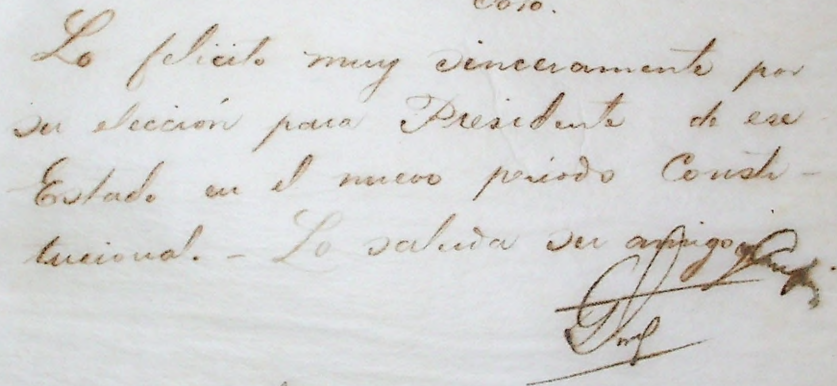 Coro.
Lo felicito muy sinceramente por
su elección para Presidente de ese
Estado en el nuevo período Consti-
tucional. - Lo saluda su amigo